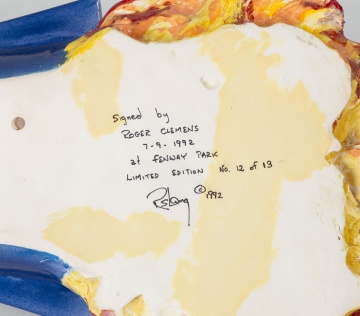 Signed by
ROGER CLEMENS
7-9-1992
at FENWAY PARK
LIMITED EDITION No. 12 of 13
© 1992